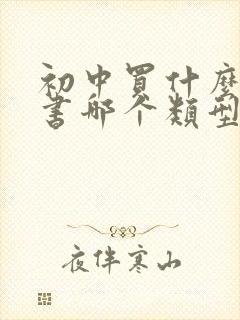 初中買什麼
書哪个類型
夜伴寒山